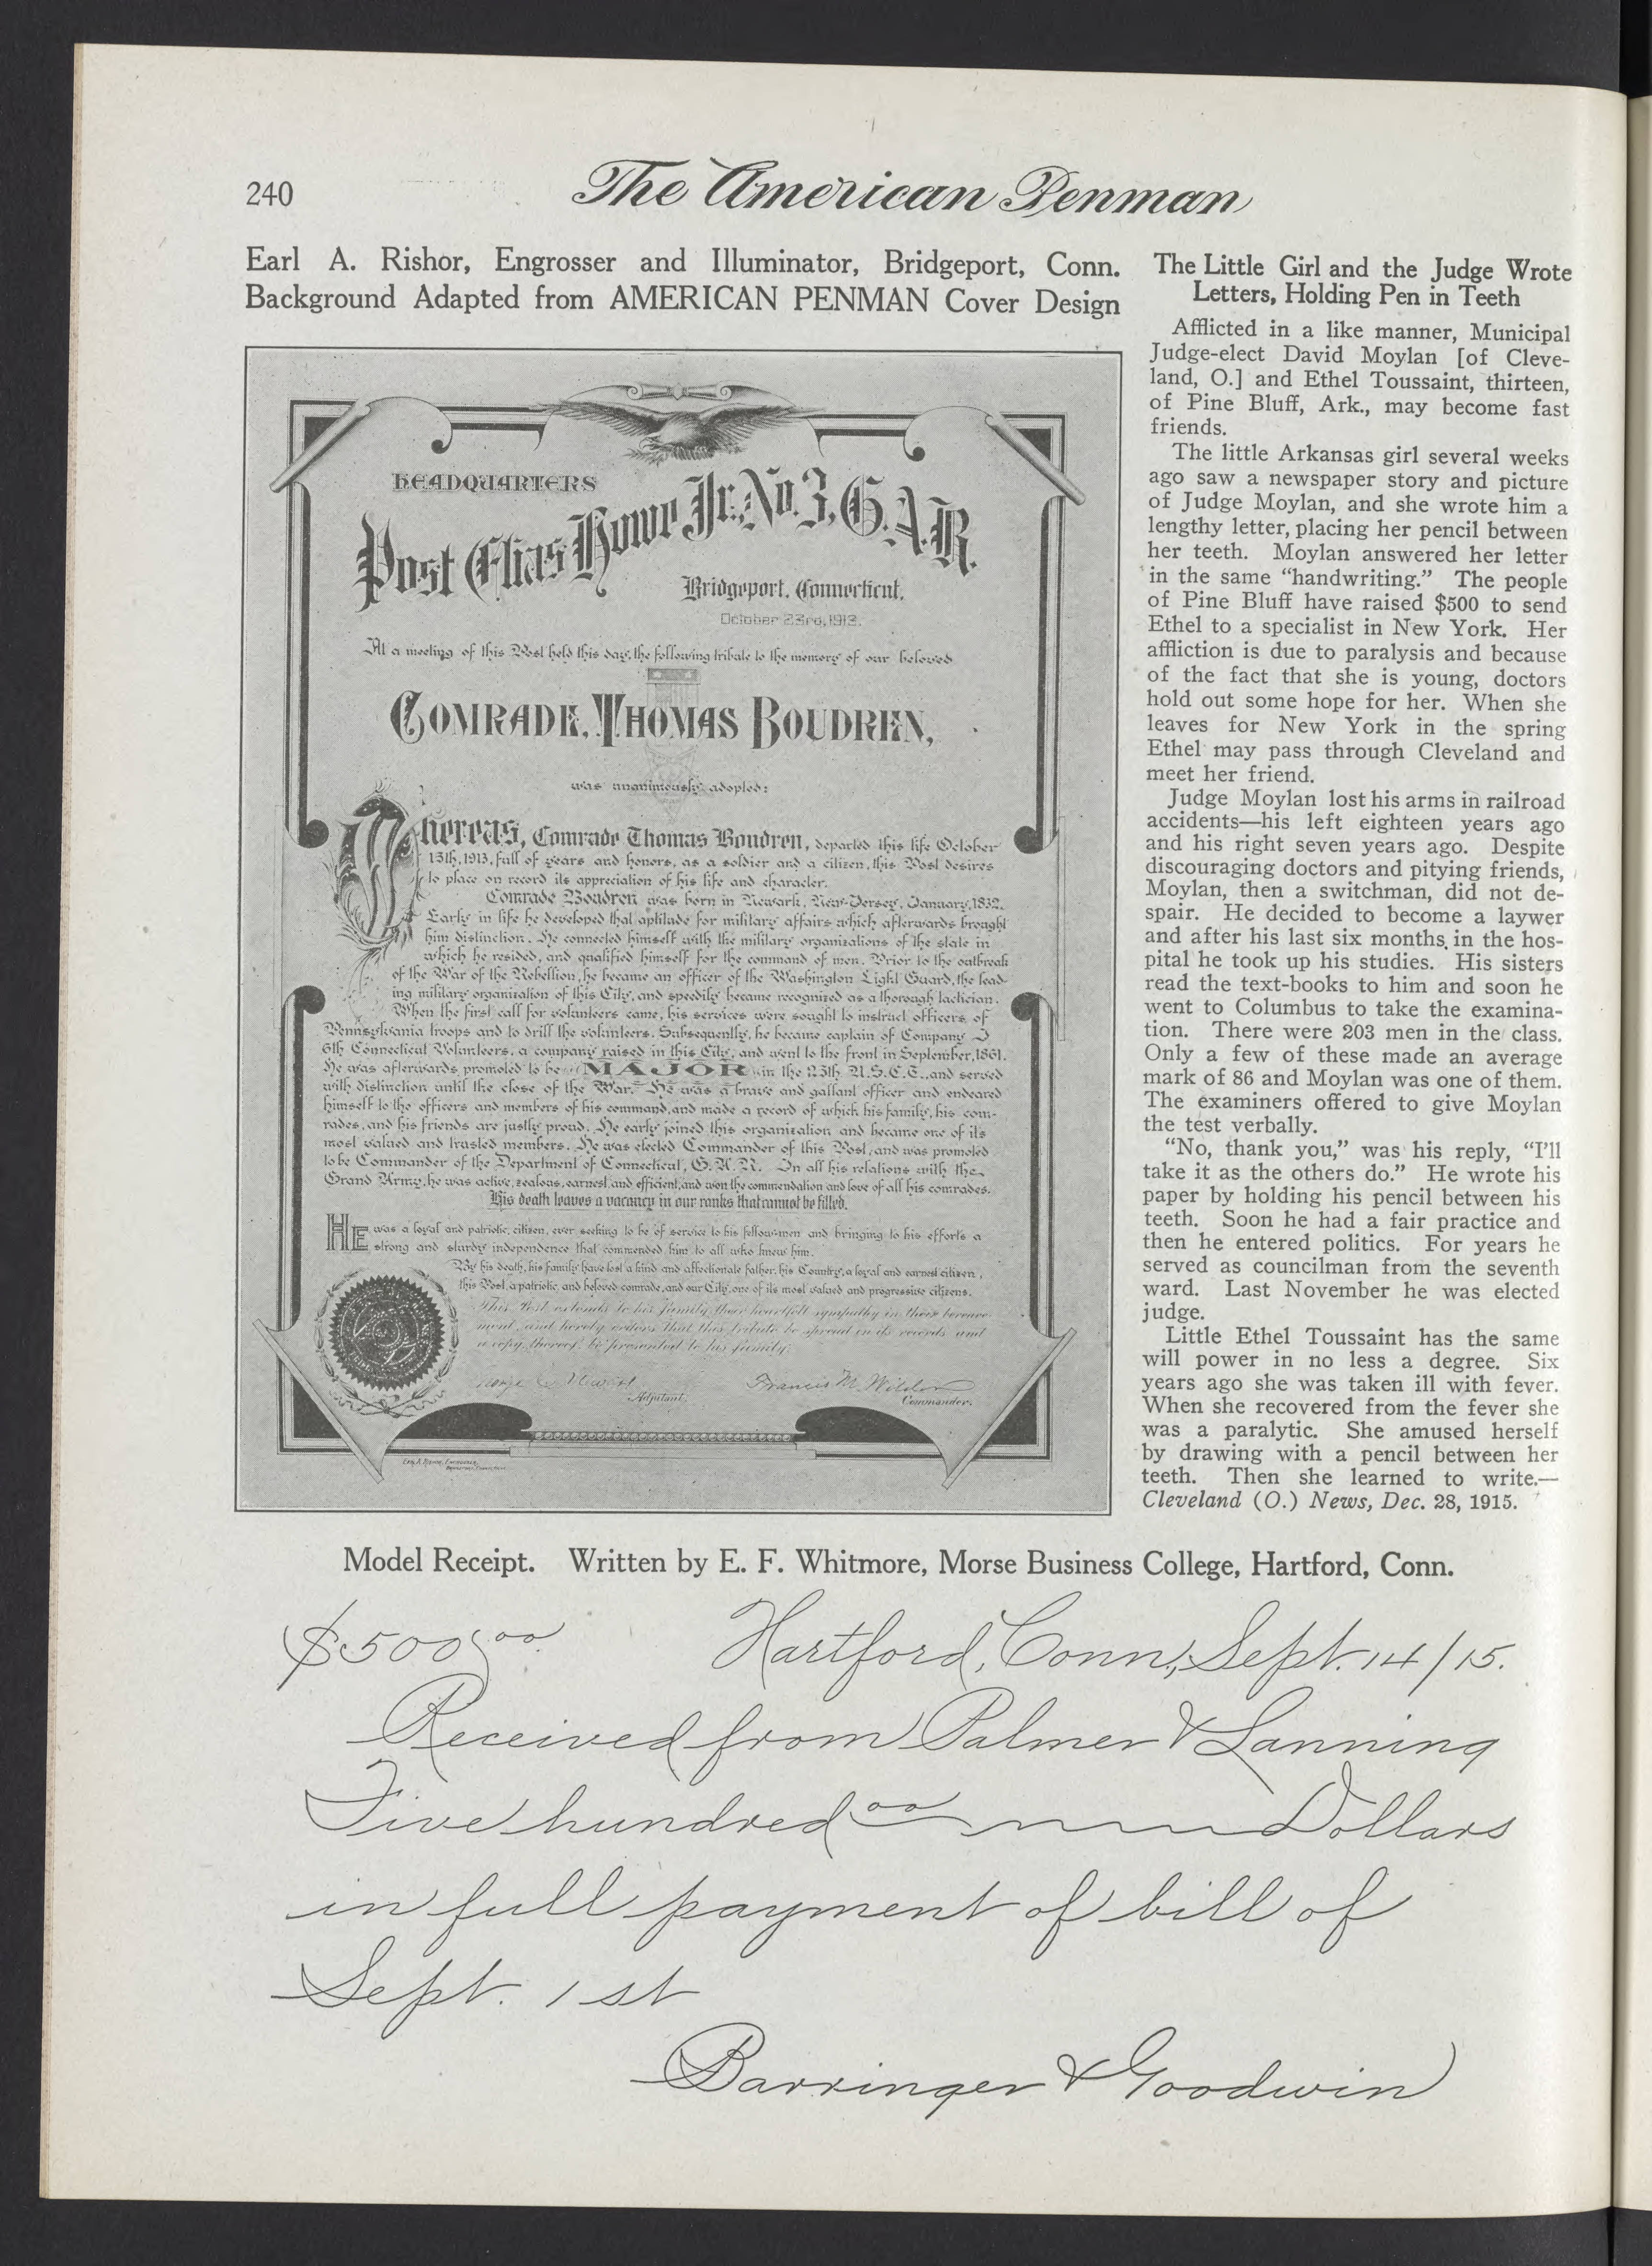 240
The American Penman
Earl A. Rishor, Engrosser and Illuminator, Bridgeport, Conn.
Background Adapted from AMERICAN PENMAN Cover Design
HEADQUARTERS
Post Elias Howe Jr. No. 3, G.A.R.
Bridgeport, Connecticut.
October 23rd, 1913.
At a meeting of this Post held this day, the following tribute to the memory of our beloved
COMRADE, THOMAS BOUDREN,
was unanimously adopted:
Whereas, Comrade Thomas Boudren, departed this life October
13th, 1913, full of years and honors, as a soldier and a citizen, this Post desires
to place on record its appreciation of his life and character.
Comrade Boudren was born in Newark, New Jersey, January, 1832.
Early in life he developed that aptitude for military affairs which afterwards brought
him distinction. He connected himself with the military organizations of the state in
which he resided, and qualified himself for the command of men. Prior to the outbreak
of the War of the Rebellion, he became an officer of the Washington Light Guard, the lead-
ing military organization of this City, and speedily became recognized as a thorough tactician.
When the first call for volunteers came, his services were sought to instruct officers of
Pennsylvania troops and to drill the volunteers. Subsequently, he became captain of Company I
6th Connecticut Volunteers, a company raised in this City, and went to the front in September, 1861.
He was afterwards promoted to be MAJOR in the 25th U.S.C.T., and served
with distinction until the close of the War. He was a brave and gallant officer and endeared
himself to the officers and members of his command, and made a record of which his family, his com-
rades, and his friends are justly proud. He early joined this organization and became one of its
most valued and trusted members. He was elected Commander of this Post, and was promoted
to be Commander of the Department of Connecticut, G.A.R. In all his relations with the
Grand Army, he was active, zealous, earnest, and efficient, and won the commendation and love of all his comrades.
His death leaves a vacancy in our ranks that cannot be filled.
HE was a loyal and patriotic, citizen, ever seeking to be of service to his fellowmen and bringing to his efforts a
strong and sturdy independence that commended him to all who knew him.
By his death, his family have lost a kind and affectionate father, his Country, a loyal and earnest citizen,
this Post, a patriotic, and beloved comrade, and our City, one of its most valued and progressive citizens.
This Post extends to his family their heartfelt sympathy in their bereave-
ment, and hereby orders that this tribute be spread on its records and
a copy thereof be presented to his family.
Francis M.
Adjutant.
Commander.
The Little Girl and the Judge Wrote
Letters, Holding Pen in Teeth
Afflicted in a like manner, Municipal
Judge-elect David Moylan [of Cleve-
land, O.] and Ethel Toussaint, thirteen,
of Pine Bluff, Ark., may become fast
friends.
The little Arkansas girl several weeks
ago saw a newspaper story and picture
of Judge Moylan, and she wrote him a
lengthy letter, placing her pencil between
her teeth. Moylan answered her letter
in the same “handwriting.” The people
of Pine Bluff have raised $500 to send
Ethel to a specialist in New York. Her
affliction is due to paralysis and because
of the fact that she is young, doctors
hold out some hope for her. When she
leaves for New York in the spring
Ethel may pass through Cleveland and
meet her friend.
Judge Moylan lost his arms in railroad
accidents—his left eighteen years ago
and his right seven years ago. Despite
discouraging doctors and pitying friends,
Moylan, then a switchman, did not de-
spair. He decided to become a laywer
and after his last six months in the hos-
pital he took up his studies. His sisters
read the text-books to him and soon he
went to Columbus to take the examina-
tion. There were 203 men in the class.
Only a few of these made an average
mark of 86 and Moylan was one of them.
The examiners offered to give Moylan
the test verbally.
“No, thank you,” was his reply, “I’ll
take it as the others do.” He wrote his
paper by holding his pencil between his
teeth. Soon he had a fair practice and
then he entered politics. For years he
served as councilman from the seventh
ward. Last November he was elected
judge.
Little Ethel Toussaint has the same
will power in no less a degree. Six
years ago she was taken ill with fever.
When she recovered from the fever she
was a paralytic. She amused herself
by drawing with a pencil between her
teeth. Then she learned to write.—
Cleveland (O.) News, Dec. 28, 1915.
Model Receipt. Written by E. F. Whitmore, Morse Business College, Hartford, Conn.
$500 00. Hartford, Conn., Sept. 14/15.
Received from Palmer & Lanning
Five hundred 00 Dollars
in full payment of bill of
Sept. 1st
Barringer & Goodwin